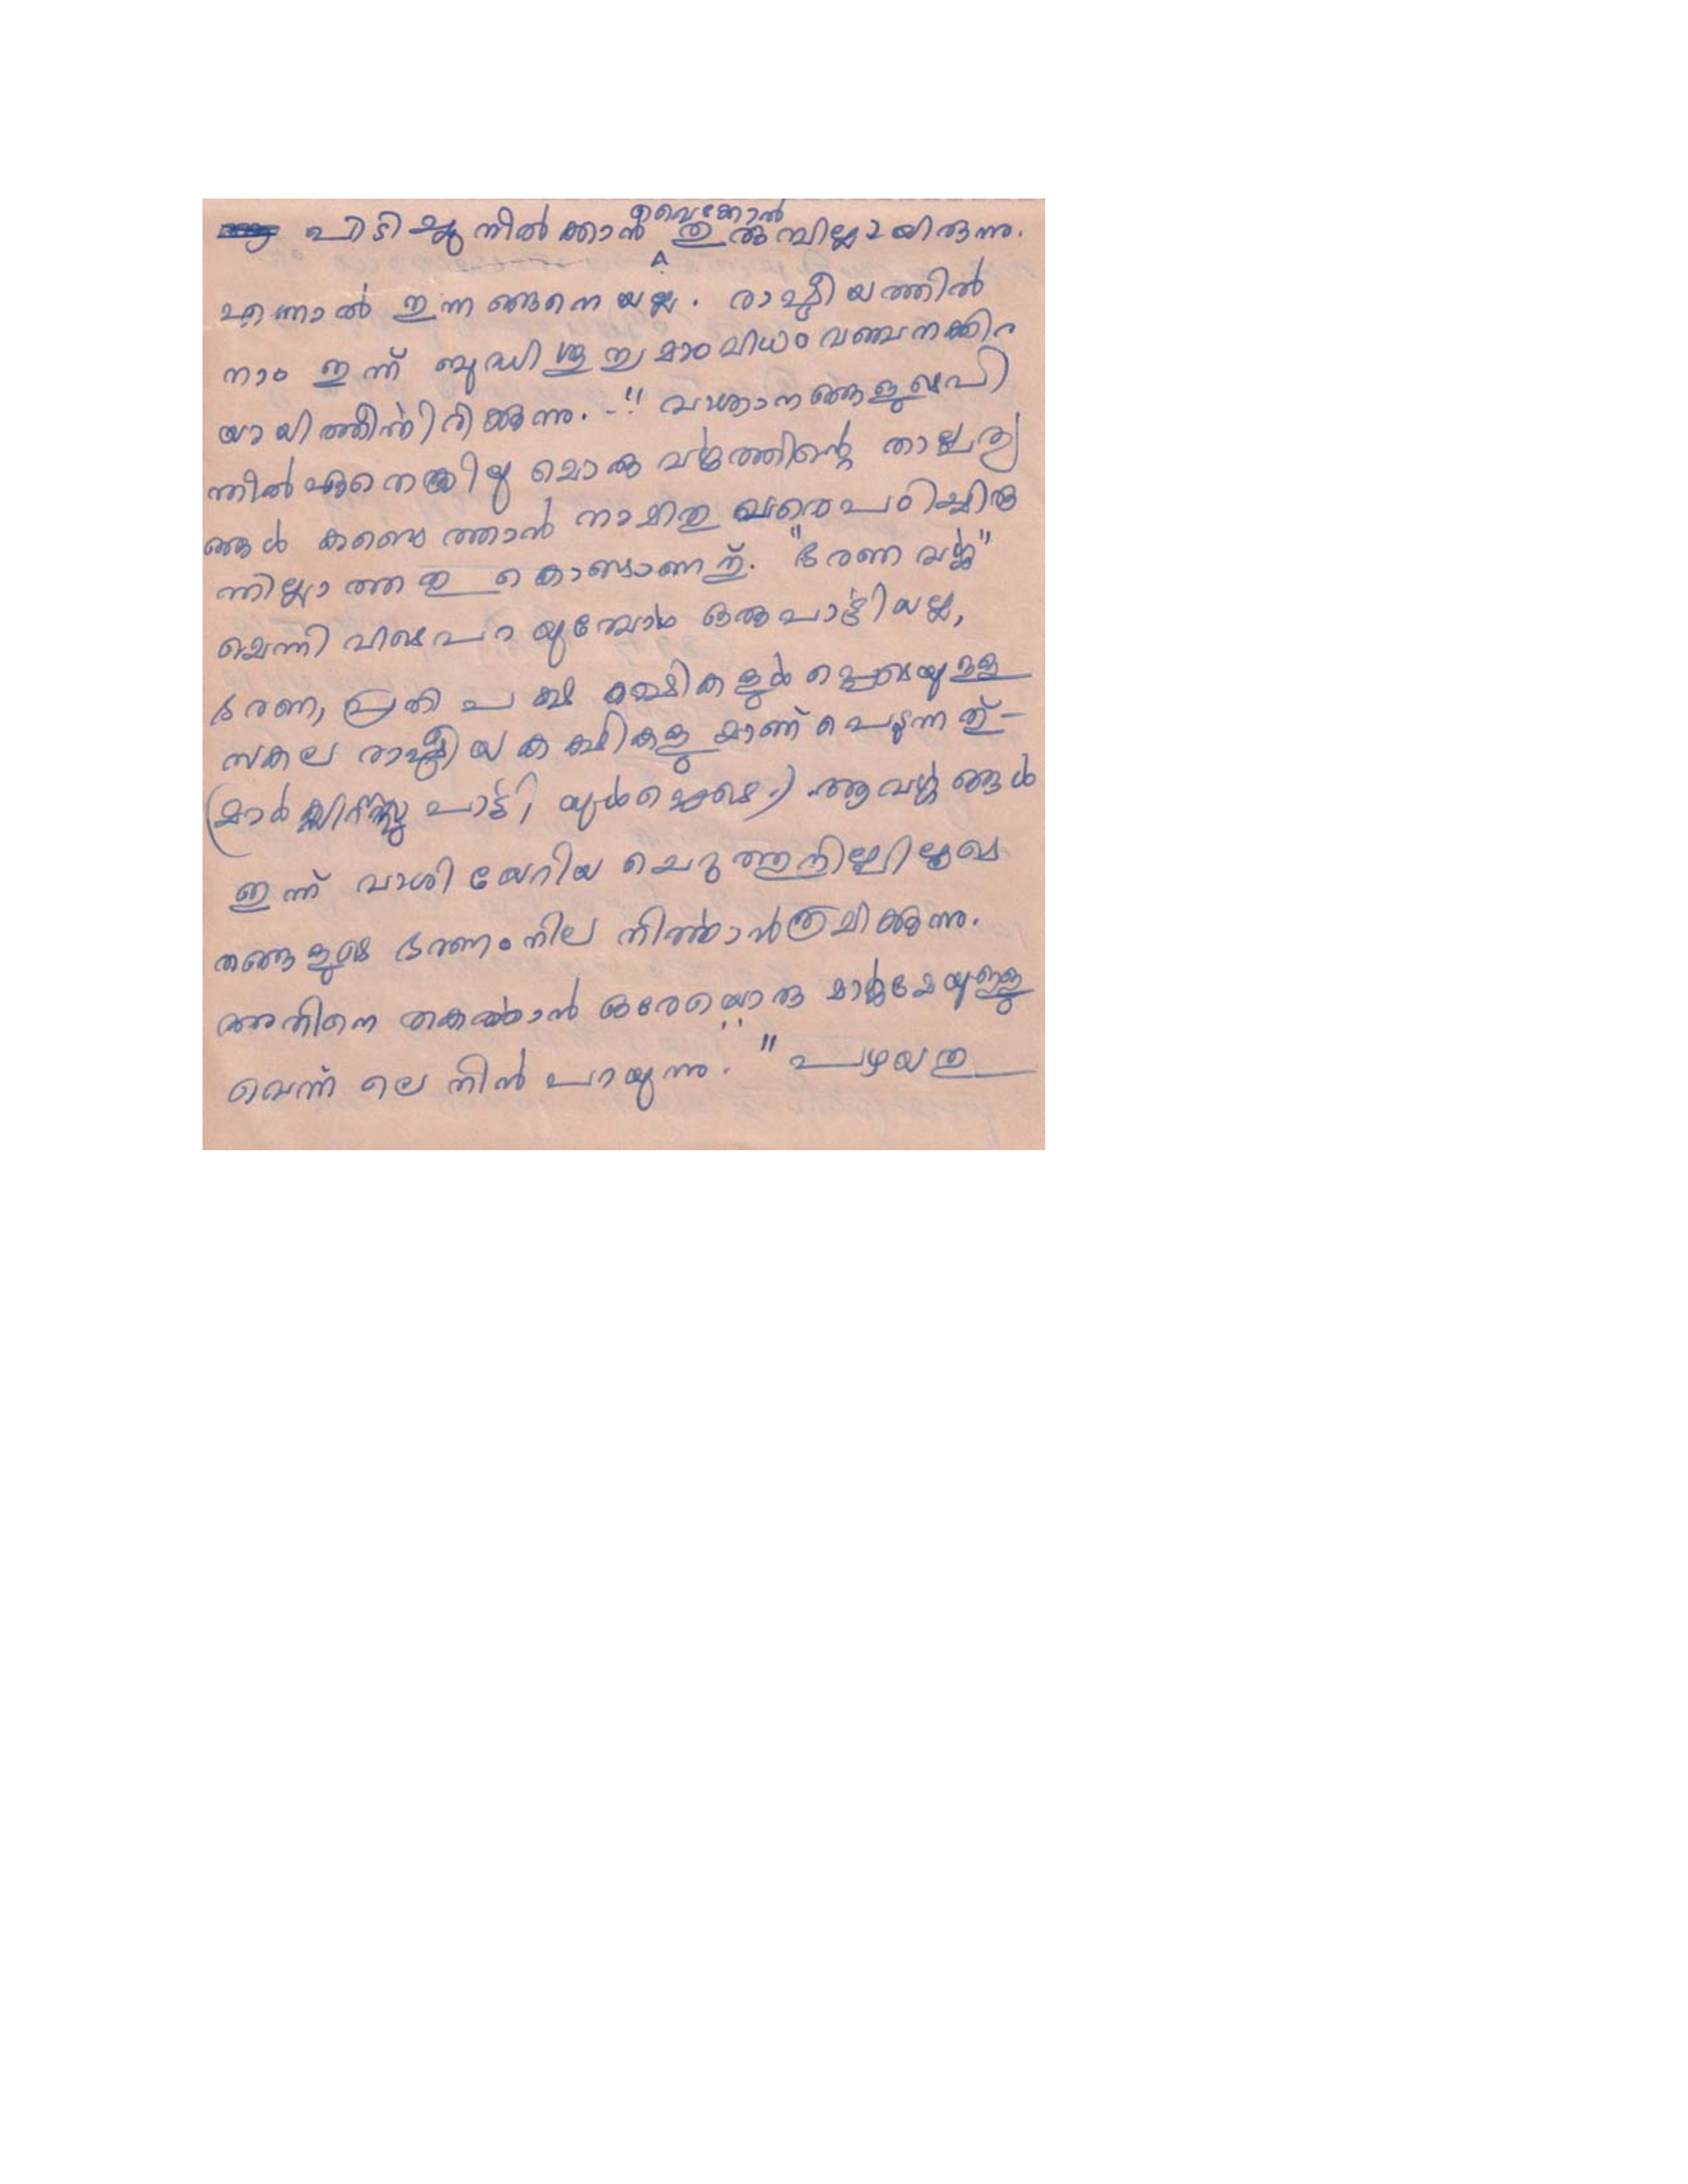 പിടിച്ചു നിൽക്കാൻ വൈക്കോൽ തുരുമ്പില്ലായിരുന്നു.
എന്നാൽ ഇന്നങ്ങനെയല്ല. രാഷ്ട്രീയത്തിൽ
നാം ഇന്ന് ബുദ്ധിശൂന്യമാംവിധം വഞ്ചനക്കിര
യായിത്തീർന്നിരിക്കുന്നു. -" വാഗ്ദാനങ്ങളുടെ പി
ന്നിൽ ഏതെങ്കിലുമൊരു വർഗ്ഗത്തിന്റെ താല്പര്യ
ങ്ങൾ കണ്ടെത്താൻ നാമിതുവരെ പഠിച്ചിരു
ന്നില്ലാത്തതുകൊണ്ടാണത്. "ഭരണ വർഗ്ഗ"
മെന്നിവിടെ പറയുമ്പോൾ ഒരു പാർട്ടിയല്ല,
ഭരണ, പ്രതിപക്ഷ കക്ഷികളുൾപ്പെടെയുള്ള
സകല രാഷ്ട്രീയ കക്ഷികളുമാണ് പെടുന്നത് -
(മാർക്സിസ്റ്റു പാർട്ടിയുൾപ്പെടെ.) ആ വർഗ്ഗങ്ങൾ
ഇന്ന് വാശിയേറിയ ചെറുത്തുനില്പിലൂടെ
തങ്ങളുടെ ഭരണം നില നിർത്താൻ ശ്രമിക്കുന്നു.
അതിനെ തകർക്കാൻ ഒരേയൊരു മാർഗ്ഗമേയുള്ളു
വെന്ന് ലെനിൻ പറയുന്നു. " പഴയതു